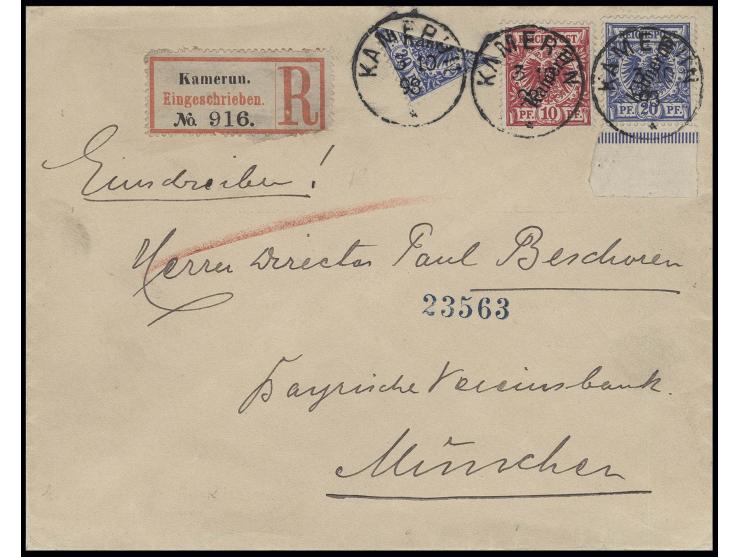 Kamerun.
Eingeschrieben.
No. 916.
R
KAMERUN
98
*
KAMERUN
REICHSPOST
Kamerun
PF. 10 PF.
*
KAMERUN
REICHSPOST
Kamerun
PF. 20 PF.
*
Einschreiben!
Herrn Director Paul Beschoren
23563
Bayrische Vereinsbank.
München